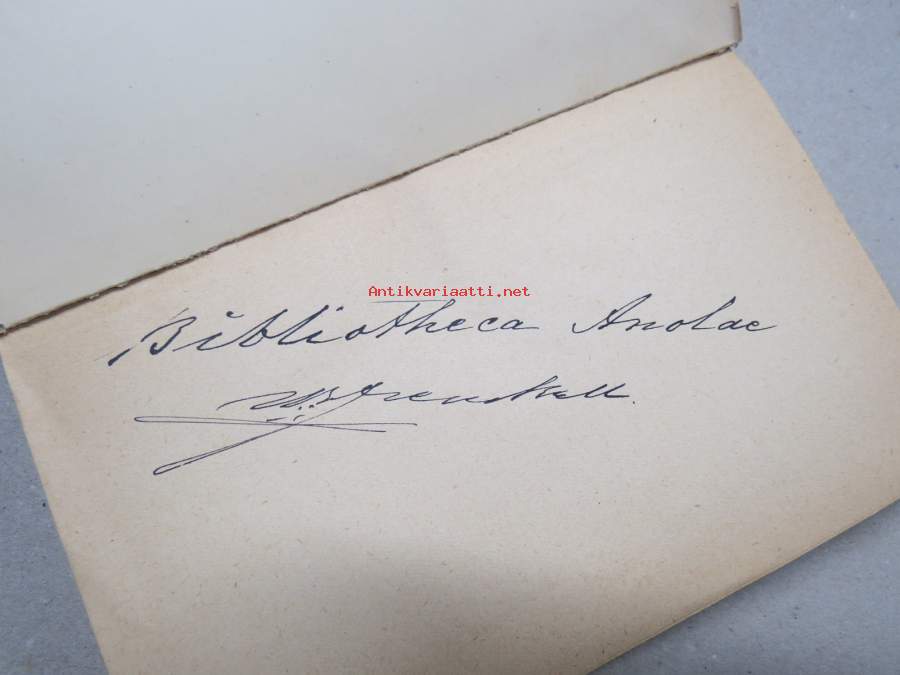 Antikvariaatti.net
Bibliotheca Anolae
Frenckell.